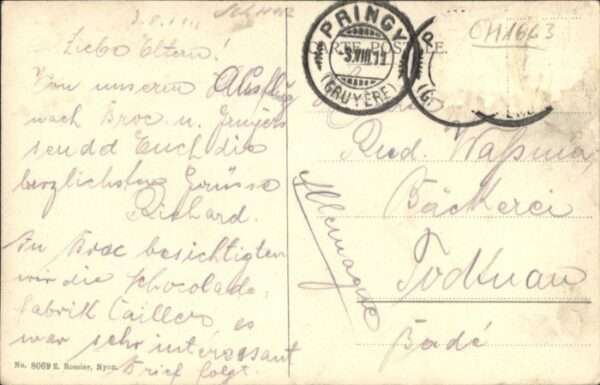 Liebe Eltern!
Von unserem Ausflug
nach Broc u. Gruyers
sendd Euch die
herzlichsten Grüsse
Richard.
In Broc besichtigten
wir die Chocolade-
fabrik Caillers es
war sehr interessant
Brief folgt.
No. 8069 E. Rossier, Nyon.
CARTE POSTALE.
PRINGY
-3.VIII.11
(GRUYÈRE)
CH1663
Rud. Waßmer
Bäckerei
Todtnau
Badé
Allemagne